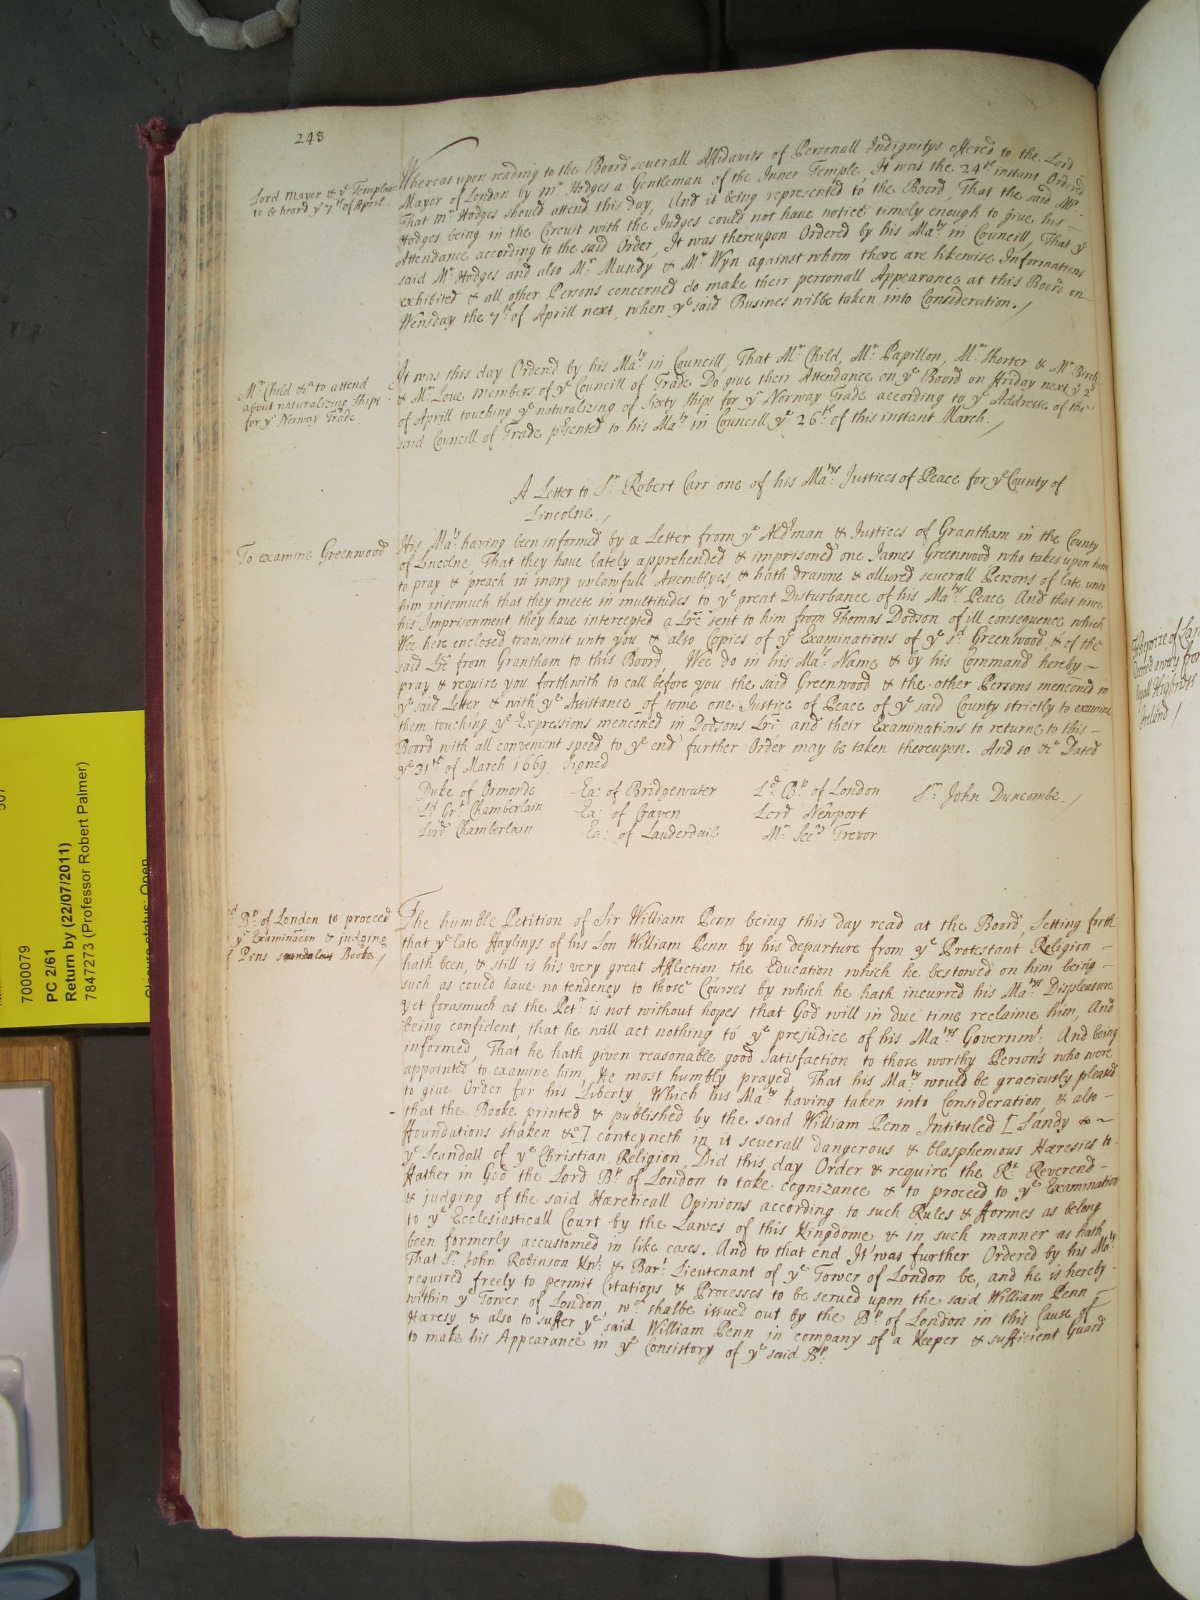 248
Lord Mayor & ye Templers
to be heard ye 7th of April
Whereas upon reading to the Board severall Affidavits of Personall Indignitys offered to the Lord
Mayor of London by Mr Hodges a Gentleman of the Inner Temple, It was the 24th instant Ordered
That Mr Hodges should attend this day, And it being represented to the Board, That the said Mr
Hodges being in the Circuit with the Judges could not have notice timely enough to give his
Attendance according to the said Order, It was thereupon Ordered by his Maty in Councill, That ye
said Mr Hodges and also Mr Mundy & Mr Wyn against whom there are likewise Informations
exhibited & all other Persons concerned do make their personall Appearance at this Board on
Wensday the 7th of Aprill next, when ye said Busines wilbe taken into Consideration./
Mr Child &ca to attend
about naturalizing Ships
for ye Norway Trade
It was this day Ordered by his Maty in Councill, That Mr Child, Mr Papillon, Mr Shorter & Mr Birch
& Mr Love members of ye Councill of Trade Do give their Attendance on ye Board on Friday next ye 2d
of Aprill touching ye naturalizing of Sixty Ships for ye Norway Trade according to ye Address of the
said Councill of Trade psented to his Maty in Councill ye 26th of this instant March./
A Letter to Sr Robert Carr one of his Matys Justices of Peace for ye County of
Lincolne/
To examine Greenwood
His Maty having been informed by a Letter from ye Aldrman & Justices of Grantham in the County
of Lincolne, That they have lately apprehended & imprisoned one James Greenwood who takes upon him
to pray & preach in many unlawfull Assemblyes, & hath drawne & allured severall Persons of late unto
him insomuch that they meete in multitudes to ye great Disturbance of his Matys Peace, And that since
his Imprisonment they have intercepted a Lre sent to him from Thomas Dodson of ill consequence which
We here enclosed transmit unto you & also Copies of ye Examinations of ye sd Greenwood, & of the
said Lre from Grantham to this Board, Wee do in his Matys Name & by his Command hereby
pray & require you forthwith to call before you the said Greenwood & the other Persons menconed in
ye said Letter & with ye Assistance of some one Justice of Peace of ye said County strictly to examine
them touching ye Expressions menconed in Dodsons Lre and their Examinations to returne to this
Board with all convenient speed to ye end further Order may be taken thereupon. And so &c Dated
ye 31th of March 1669 Signed
Duke of Ormonde Ea: of Bridgewater Ld Bp of London Sr John Duncombe./
Ld Grt Chamberlain Ea: of Craven Lord Newport
Lord Chamberlain Ea: of Lauderdail Mr Secry Trevor
Ld Bp of London to proceed
ye Examinacon & judging
of Pens scandalous Booke/
The humble Petition of Sir William Penn being this day read at the Board, Setting forth
that ye late Haylings of his Son William Penn by his departure from ye Protestant Religion
hath been, & still is his very great Affliction, the Education which he bestowed on him being
such as could have no tendency to those Courses by which he hath incurred his Matys Displeasure
yet forasmuch as the Petr is not without hopes that God will in due time reclaime him, And
being confident, that he will act nothing to ye prejudice of his Matys Governmt: And being
informed, That he hath given reasonable good Satisfaction to those worthy Persons who were
appointed to examine him, He most humbly prayed, That his Maty would be graciously pleased
to give Order for his Liberty, Which his Maty having taken into Consideration, & also
that the Booke printed & published by the said William Penn Intituled [Sandy
ffoundations shaken &ca] conteyneth in it severall dangerous & blasphemous Hæresies to
ye Scandall of ye Christian Religion, Did this day Order & require the Rt Reverend
Father in God the Lord Bp of London to take cognizance & to proceed to ye Examination
& judging of the said Hæreticall Opinions according to such Rules & fformes as belong
to ye Ecclesiasticall Court by the Lawes of this Kingdome & in such manner as hath
been formerly accustomed in like cases. And to that end It was further Ordered by his Maty
That Sr John Robinson Knt & Bart Lieutenant of ye Tower of London be, and he is hereby
required freely to permit Citations & Processes to be served upon the said William Penn
within ye Tower of London, wch shalbe issued out by the Bp of London in this Cause of
Hæresy, & also to suffer ye said William Penn in company of a Keeper & sufficient Guard
to make his Appearance in ye Consistory of ye said Bp.
7000079
PC 2/61
Return by (22/07/2011)
7847273 (Professor Robert Palmer)
Closure status: Open
Ireland/